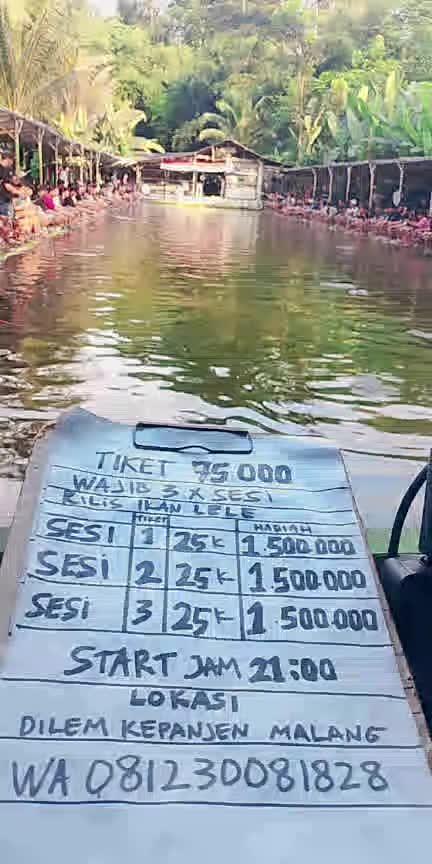 TIKET 75 000
WAJIB 3 X SESI
RILIS IKAN LELE
TIKET HADIAH
SESI 1 25K 1.500.000
SESI 2 25K 1 500.000
SESI 3 25K 1.500.000
START JAM 21:00
LOKASI
DILEM KEPANJEN MALANG
WA 081230081828